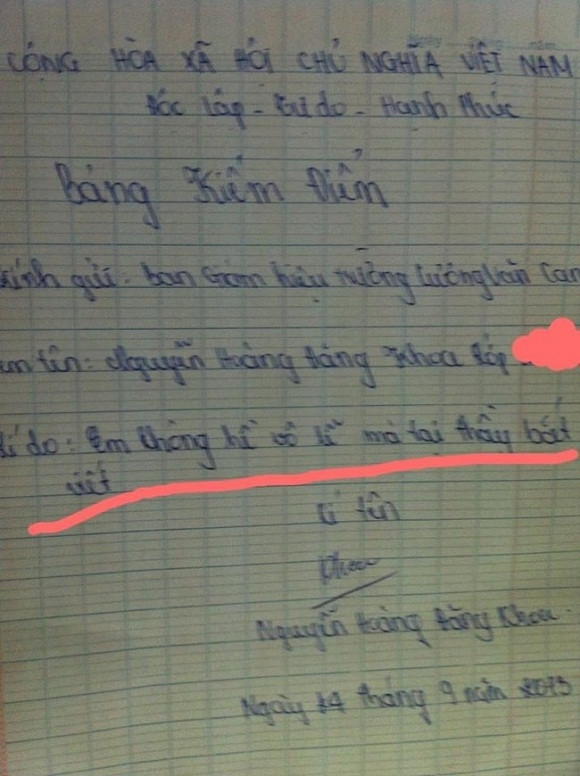 CỘNG HÒA XÃ HỘI CHỦ NGHĨA VIỆT NAM
Độc lập - Tự do - Hạnh Phúc
Bảng Kiểm Điểm
kính gửi: ban Giám hiệu trường Lương Văn Can
Em tên: Nguyễn Hoàng Đăng Khoa lớp
Lí do: Em không hề vô lễ mà tại thầy bắt
viết
Kí tên
Khoa
Nguyễn Hoàng Đăng Khoa.
Ngày 14 tháng 9 năm 2013